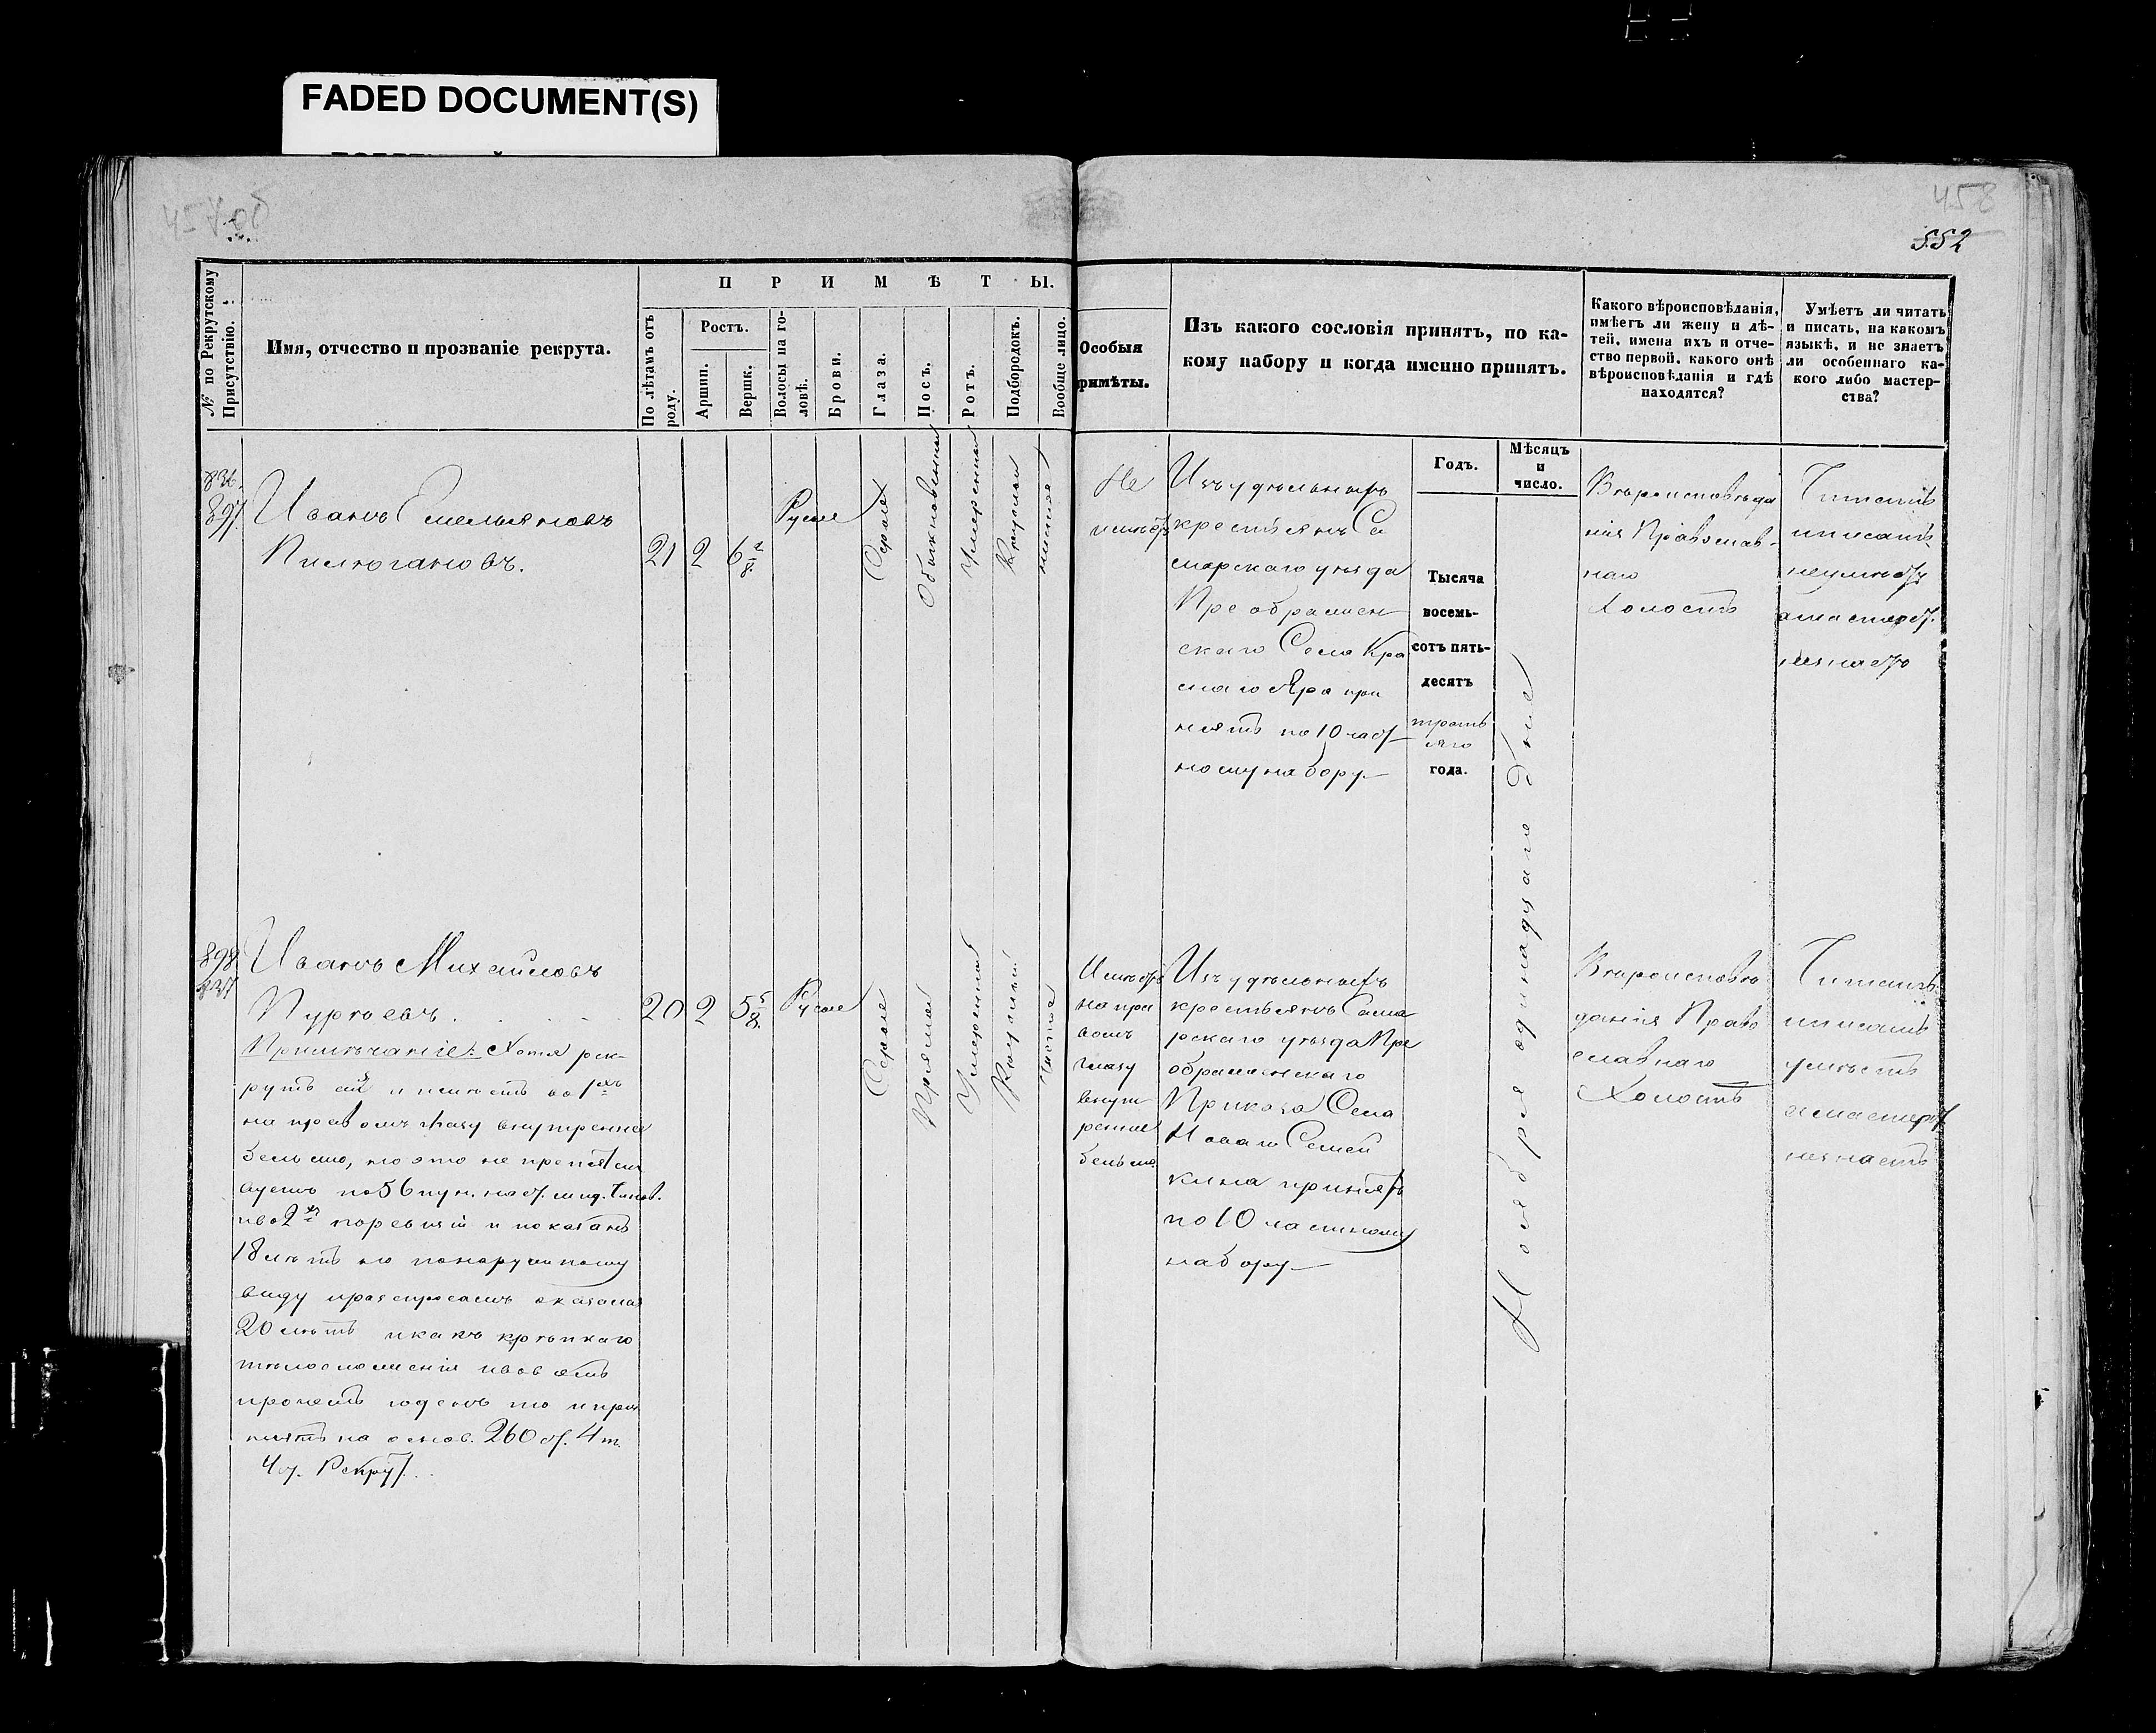 FADED DOCUMENT(S)
457об
458
552
№ по Рекрутскому Присутствію.
Имя, отчество и прозваніе рекрута.
ПРИМѢТЫ.
По лѣтамъ отъ роду.
Ростъ.
Аршин.
Вершк.
Волосы на го-
ловѣ.
Брови.
Глаза.
Носъ.
Ротъ.
Подбородокъ.
Вообще лицо.
Особыя
римѣты.
Изъ какого сословія принятъ, по ка-
кому набору и когда именно принятъ.
Какого вѣроисповѣданія,
имѣетъ ли жену и дѣ-
тей, имена ихъ и отче-
ство первой, какого онѣ
вѣроисповѣданія и гдѣ
находятся?
Умѣетъ ли читать
и писать, на какомъ
языкѣ, и не знаетъ
ли особеннаго ка-
кого либо мастер-
ства?
Годъ.
Мѣсяцъ
и
число.
836.
897
Иванъ Емельяновъ
Пилюгановъ.
21
2
6 2/8
Русые
Серые
Обыкновенный
Умеренный
Круглый
чистое
Не
имѣетъ
Изъ удѣльныхъ
крестьянъ Са
марскаго уѣзда
Преображен
скаго Села Кра
снаго Яра при
нятъ по 10 част
ному набору
Тысяча
восемь-
сотъ пять-
десятъ
третъ
яго
года.
Ноября одинадцаго дня
Вѣроисповѣда
нія Православ-
наго
Холостъ
Читать
и писать
неумѣетъ
а мастерст.
незнаетъ
898
837
Иванъ Михайловъ
Пуртьевъ.
20
2
5 5/8
Русые
Серые
Прямой
Умеренный
Круглый
Чистое
Примѣчаніе: Хотя рек-
рутъ сей и имѣетъ во 1хъ
на правомъ глазу внутренне
бельмо, но это не препятст
вуетъ по 56 пун. наст.
и во 2хъ по ревизіи и показанъ
18 лѣтъ но по наружному
виду
20 лѣтъ и какъ крѣпкаго
тѣлосложенія и во в
протчемъ годенъ то и при
нятъ на основ. 260 ст. 4 т.
Уст. Рекрут.
Имѣетъ
на пра
вомъ
глазу
внут
реннее
бельмо
Изъ удѣльныхъ
крестьянъ Сама
рскаго уѣзда Пре
ображенскаго
Приказа Села
Новаго Семей
кина принятъ
по 10 частному
набору
Вѣроисповѣ
данія Право
славнаго
Холостъ
Читать
и писать
умѣетъ
а мастерст
незнаетъ